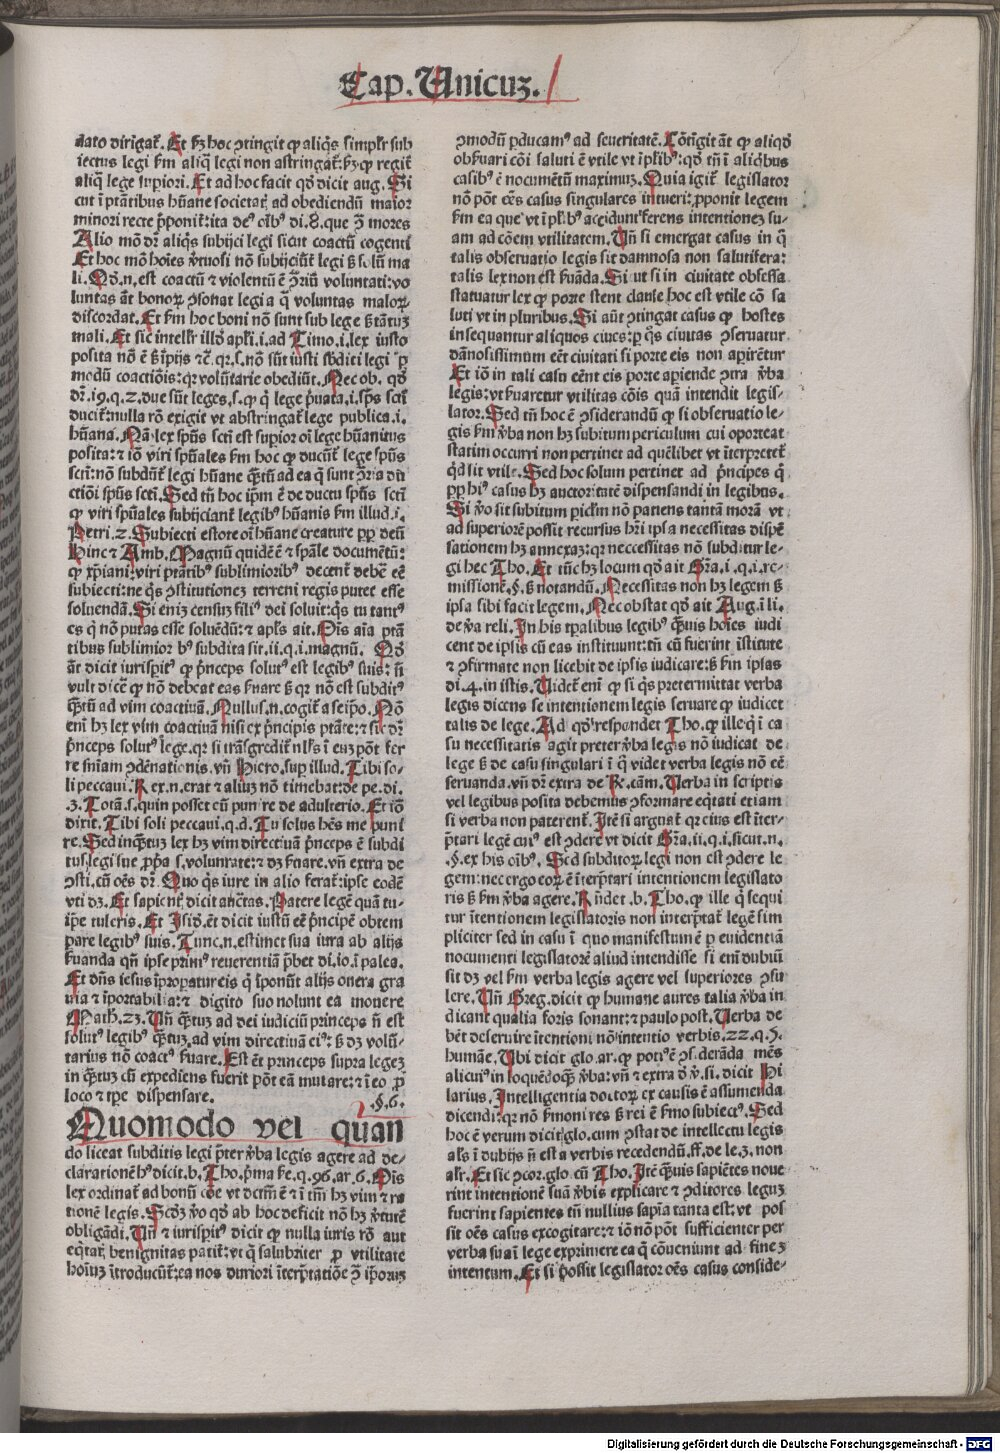 Cap. Unicuꝫ.
dato dirigat̄. Et ſꝫ hoc ꝯtingit ꝙ aliq̄s simplr̄ sub
iectus legi ẜm aliq̄ legi non astringat̄: ſꝫ ꝙ regit̄
aliq̄ lege supiori. Et ad hoc facit qd̄ dicit aug. Si
cut ī ptātibus hūane societat̄, ad obediendū maior
minori recte p̄ponit̄: ita deꝰ oībꝰ di. 8. que ꝯ̄ mores
Alio mō dr̄ aliq̄s subijci legi sicut coactū cogenti
Et hoc mō hoīes v̓tuosi nō subijciūt̄ legi ſꝫ solū ma
li. Qd̄. n. est coactū ⁊ violentū ē ꝯ̄riū volūtati: vo
luntas āt bonoꝝ ꝯsonat legi a q̄ voluntas maloꝝ
discordat. Et ẜm hoc boni nō sunt sub lege ſꝫ tātuꝫ
mali. Et sic intellr̄ illd̄ apl̄i. i. ad Timo. i. lex iusto
posita nō ē ſꝫ īpijs ⁊c̄. qr. s. nō sūt iusti sb̄diti legi ꝑ
modū coactiōis: qr volūtarie obediūt. Nec ob. qd̄
dr̄. 19. q. 2. due sūt leges, s. ꝙ q̄ lege p̄uata, i. sp̄s sct̄i
ducit̄: nulla rō exigit vt abstringat̄ lege publica. i.
hūana. Nā lex sp̄ūs sct̄i est supior oī lege hūanitus
posita: ⁊ iō viri sp̄uales ẜm hoc ꝙ ducunt̄ lege sp̄ūs
sct̄i: nō subdūt̄ legi hūane q̄ꝫtū ad ea q̄ sunt ꝯ̄ria du
ctiōi sp̄ūs sct̄i. Sed tn̄ hoc ip̄m ē de ductu sp̄ūs sct̄i
ꝙ viri sp̄uales subijciant̄ legibꝰ hūanis ẜm illud. i.
Petri. 2. Subiecti estote oī hūane creature ꝓp̄ deū
Hinc ⁊ Amb. Magnū quidē ē ⁊ sp̄ale documētū:
ꝙ xp̄iani: viri ptātibꝰ sublimioribꝰ decent̄ debē eē
subiecti: ne q̄s ꝯstitutionez terreni regis putet esse
soluendā. Si enīz censuꝫ filiꝰ dei soluit: q̄s tu tantꝰ
es q̄ nō putas esse soluēdū: ⁊ apl̄s ait. Oīs aīa ptā
tibus sublimiorbꝰ subdita sit. ii. q. i. magnū. Qd̄
āt dicit iurispitꝰ ꝙ p̄nceps solutꝰ est legibꝰ suis: n̄
vult dicē ꝙ nō debeat eas ẜuare ſꝫ qr nō est subditꝰ
q̄ꝫtū ad vim coactiuā. Nullus. n. cogit̄ a seip̄o. Nō
enī hꝫ lex vim coactiuā nisi ex p̄ncipis ptāte: ⁊ sic dr̄
p̄nceps solutꝰ lege. qr si trāsgredit̄ nls̄ ī euꝫ pōt fer
re sn̄iam ꝯdēnationis. vn̄ Hiero. sup illud. Tibi so-
li peccaui. Rex. n. erat ⁊ aliuꝫ nō timebat: de pe. di.
.3. Totā. s. quin posset cū punire de adulterio. Et iō
dixit. Tibi soli peccaui. q. d. Tu solus hēs me puni
re. Sed inq̄ꝫtuꝫ lex hꝫ vim directiuā p̄nceps ē subdi
tus legi sue ꝓp̄a s. voluntate: ⁊ dꝫ ẜuare. vn̄ extra de
ꝯsti. cū oēs dr̄. Quo q̄s iure in alio ferat̄: ipse eodē
vti dꝫ. Et sapient̄ dicit anct̄as. Patere legē quā tu-
ip̄e tuleris. Et Isid̓. et̄ dicit iustū eē p̄ncipē obtem
perare legibꝰ suis. Tunc. n. estinet sua iura ab alijs
ẜuanda qn̄ ipse primꝰ reuerentiā p̄bet di. io. i palea.
Et dn̄s iesus īproꝑatur eis q̄ īponūt alijs onera gra
uia ⁊ īportabilia: ⁊ digito suo nolunt ea mouere
Math̄. 23. Vn̄ q̄ꝫtuꝫ ad dei iudiciū princeps n̄ est
solutꝰ legibꝰ q̄ꝫtuꝫ ad vim directiuā eiꝰ: ſꝫ dꝫ volū-
tarius nō coactꝰ ẜuare. Est et̄ princeps supra legeꝫ
in q̄ꝫtuꝫ cū expediens fuerit pōt eā mutare: ⁊ ī eo ꝓ
loco ⁊ tꝑe dispensare.
.§. 6.
Quomodo vel quan
do liceat subditis legi p̄ter v̓ba legis agere ad de-
clarationē hꝰ dicit. b. Tho. p̄ma ſe. q. 96. ar. 6. Oīs
lex ordinat̄ ad bonū cōe vt dictm̄ ē ⁊ ī tm̄ hꝫ vim ⁊ ra
tionē legis. Scd̄ꝫ v̓o qd̄ ab hoc deficit nō hꝫ v̓tutē
obligādi. Vn̄ ⁊ iurispitꝰ dicit ꝙ nulla iuris rō aut
eq̄tat̄ benignitas patit̄: vt q̄ salubriter ꝓ vtilitate
hoīuꝫ ītroducūt̄: ea nos duriori īterp̄tatiōe ꝯ̄ ip̄oruꝫ
ꝯmodū ꝑducamꝰ ad seueritatē. Cōtīgit āt ꝙ aliqd̄
obẜuari cōi saluti ē vtile vt ī pl̄ibꝰ: qd̄ tn̄ ī aliq̄bus
casibꝰ ē nocumētū maximuꝫ. Quia igit̄ legislator
nō pōt oēs casus singulares intueri: ꝓponit legem
ẜm ea que vt ī pl̄ibꝰ accidunt ferens intentioneꝫ su-
am ad cōem vtilitatem. Vn̄ si emergat casus in q̄
talis obseruatio legis sit damnosa non salutifera:
talis lex non est ẜuāda. Sicut si in ciuitate obsessa
statuatur lex ꝙ porte stent clause hoc est vtile cō sa
luti vt in pluribus. Si aūt ꝯtingat casus ꝙ hostes
insequantur aliquos ciues: ꝑ q̄s ciuitas ꝯseruatur
dānosissimum eēt ciuitati si porte eis non apirētur
Et iō in tali casu eēnt eis porte apiende ꝯtra v̓ba
legis: vt ẜuaretur vtilitas cōis quā intendit legis-
lator. Sed tn̄ hoc ē ꝯsiderandū ꝙ si obseruatio le-
gis ẜm v̓ba non hꝫ subitum periculum cui oporteat
statim occurri non pertinet ad quēlibet vt īterpretet̄
qd̄ sit vtile. Sed hoc solum pertinet ad p̄ncipes q̄
ꝓp̄ hiꝰ casus hꝫ auctoritatē dispensandi in legibus.
Si v̓o sit subitum piclm̄ nō patiens tantā morā vt
ad superiorē possit recursus hr̄i ipsa necessitas dispē
sationem hꝫ annexaꝫ: qr neccessitas nō subditur le-
gi hec Tho. Et tūc hꝫ locum qd̄ ait Gra. i. q. i. re-
missionē. §. ſꝫ notandū. Necessitas non hꝫ legem ſꝫ
ipsa sibi facit legem. Nec obstat qd̄ ait Aug. i li.
de v̓a reli. In his tꝑalibus legibꝰ q̄ꝫuis hoīes iudi
cent de ipsis cū eas instituunt: tn̄ cū fuerint īstitute
⁊ ꝯfirmate non licebit de ipsis iudicare: ſꝫ ẜm ipsas
di. 4. in istis. Videt̄ enī ꝙ si q̄s pretermittat verba
legis dicens se intentionem legis seruare ꝙ iudicet
talis de lege. Ad qd̄ respondet Tho. ꝙ ille q̄ i ca
su necessitatis agit preter v̓ba legis nō iudicat de
lege ſꝫ de casu singulari ī q̄ videt verba legis nō eē
seruanda. vn̄ dr̄ extra de Re. cām. Verba in scriptis
vel legibus posita debemus ꝯformare eq̄tati etiam
si verba non paterent̄. Itē si arguat̄ qr eius est īter-
p̄tari legē cuiꝰ est ꝯdere vt dicit Gra. ii. q. i. sicut. n.
.§. ex his oībꝰ. Sed subditoꝝ legi non est ꝯdere le
gem: nec ergo eoꝝ ē īterp̄tari intentionem legislato
ris ſꝫ ẜm v̓ba agere. Rn̄det. b. Tho. ꝙ ille q̄ sequi
tur ītentionem legislatoris non interp̄tat̄ legē sim
pliciter sed in casu ī quo manifestum ē ꝑ euidentiā
nocumenti legislatorē aliud intendisse si enī dubiū
sit dꝫ vel ẜm verba legis agere vel superiores ꝯsu
lere. Vn̄ Greg. dicit ꝙ humane aures talia v̓ba in
dicant qualia foris sonant: ⁊ paulo post. Verba de
bēt deseruire ītentioni nō intentio verbis. 22. q. 5.
humāe. Vbi dicit glo. ar. ꝙ potiꝰ ē ꝯsiderāda mēs
alicuiꝰ in loquēdo q̄ꝫ v̓ba: vn̄ ⁊ extra d̓ v̓. si. dicit Hi
larius. Intelligentia doctoꝝ ex causis ē assumenda
dicendi: qr nō ẜmoni res ſꝫ rei ē ẜmo subiectꝰ. Sed
hoc ē verum dicit glo. cum ꝯstat de intellectu legis
als̄ ī dubijs n̄ est a verbis recedendū ff. de le. 3. non
alr̄. Et sic ꝯcor. glo. cū Tho. Itē q̄ꝫuis sapiētes noue
rint intentionē suā v̓bis explicare ⁊ ꝯditores leguꝫ
fuerint sapientes tn̄ nullius sapīa tanta est: vt pos
sit oēs casus excogitare: ⁊ iō nō pōt sufficienter per
verba sua ī lege exprimere ea q̄ cōueniunt ad fineꝫ
intentum. Et si possit legislator oēs casus conside-
Digitalisierung gefördert durch die Deutsche Forschungsgemeinschaft - DFG